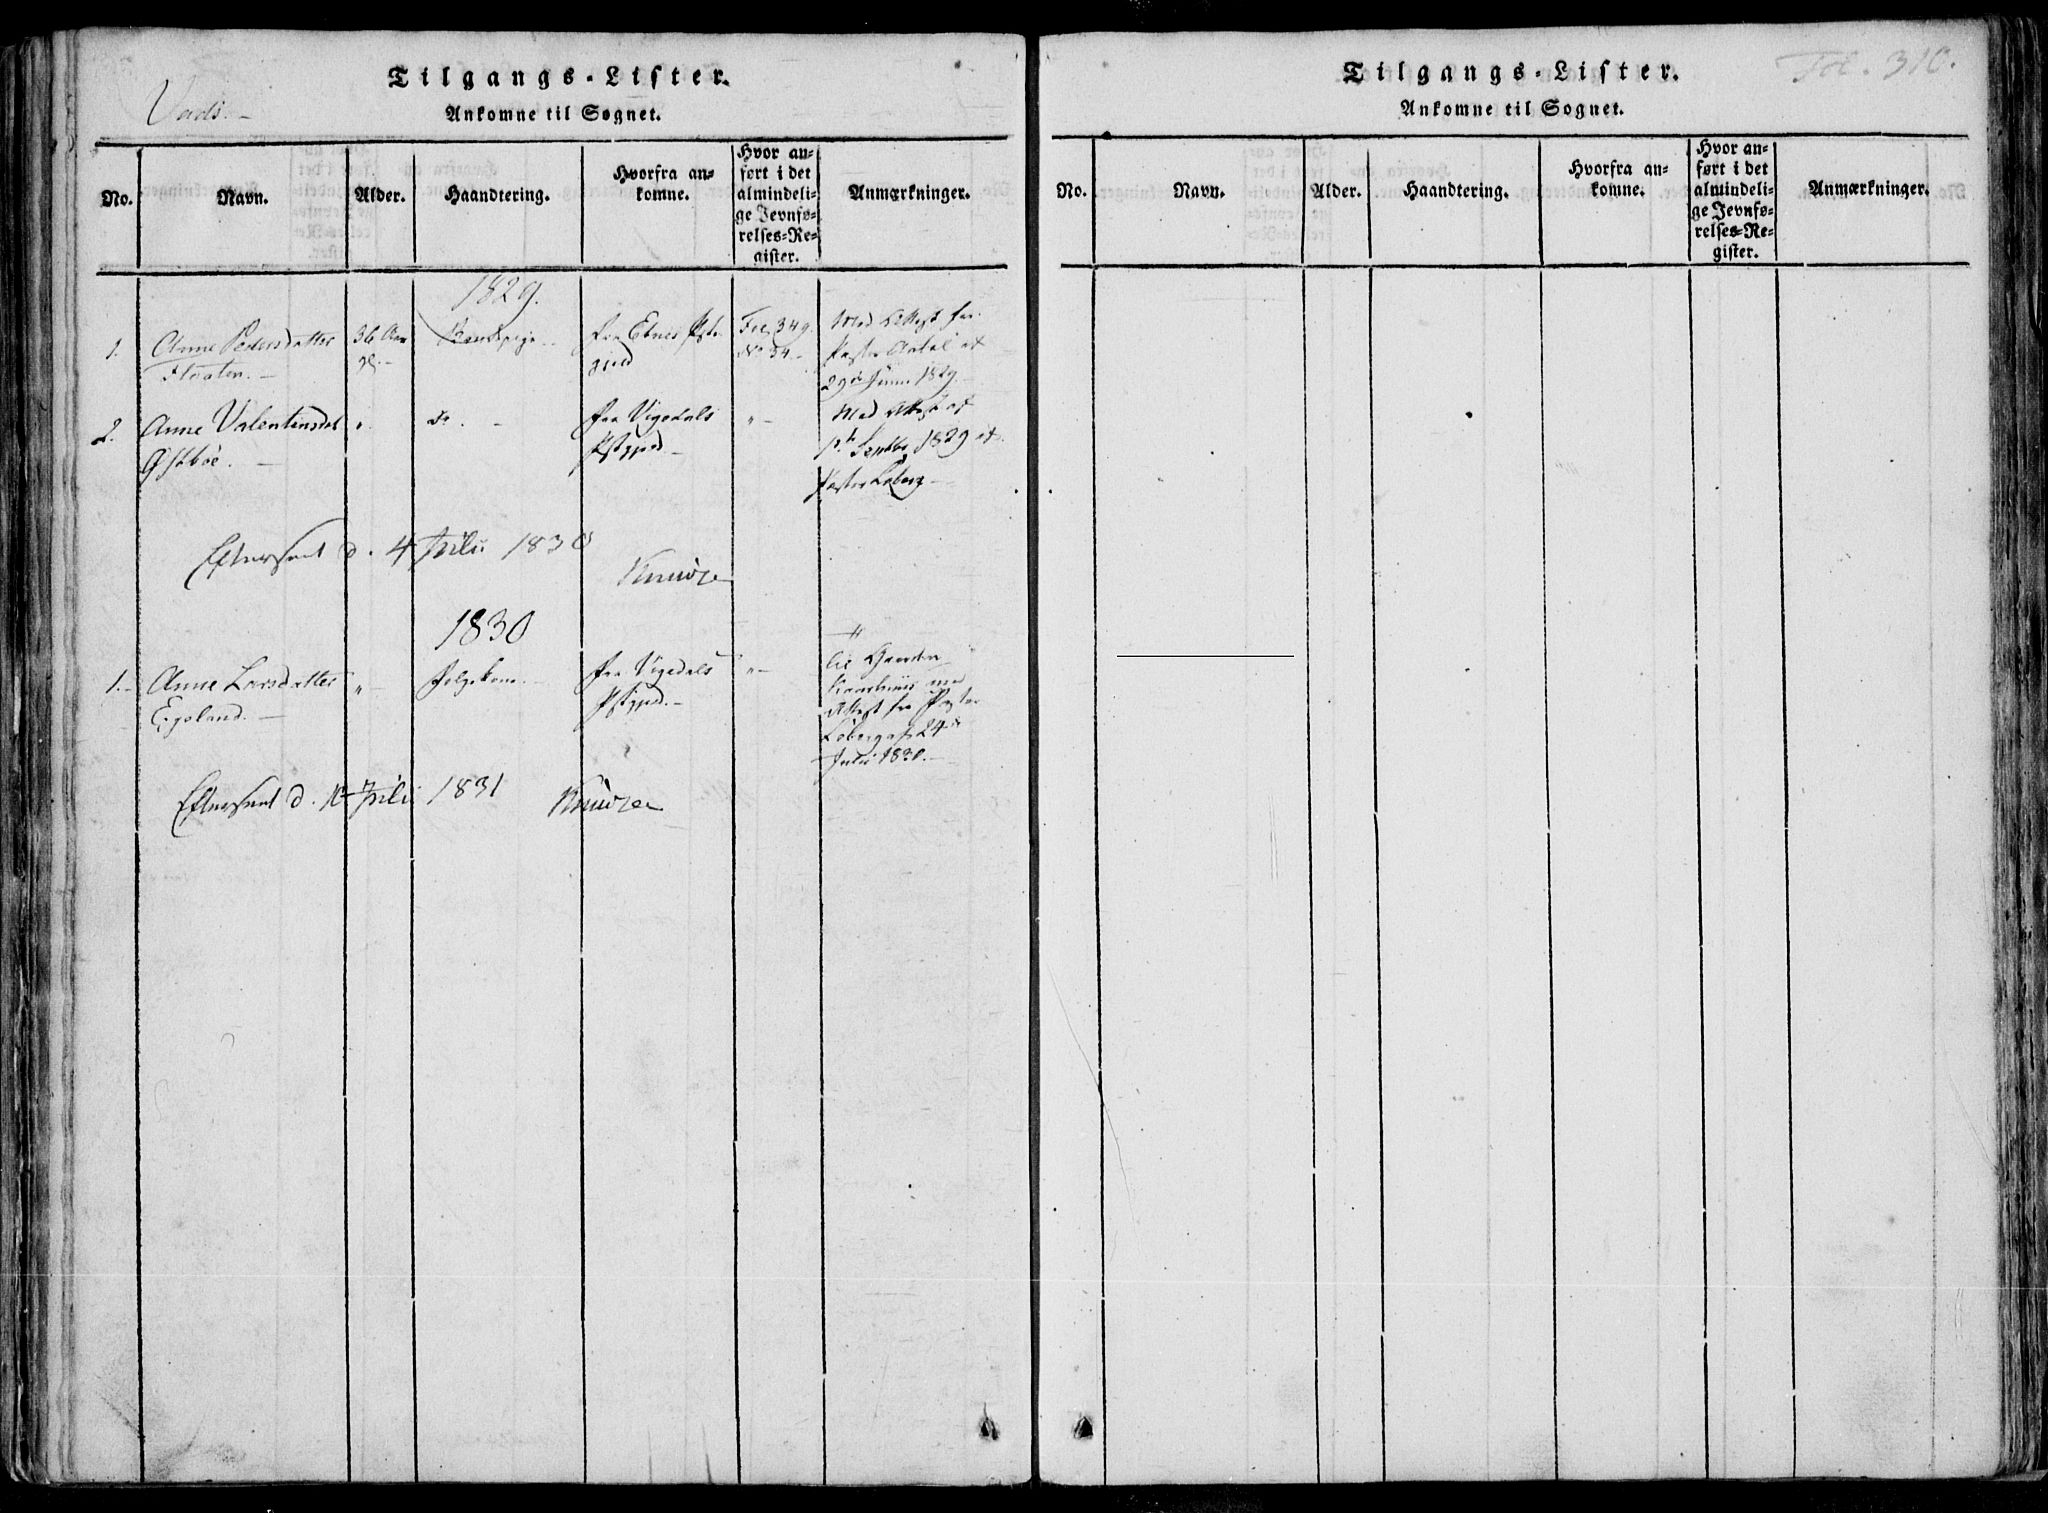 Vads.-
Tilgangs-Lister.
Ankomne til Sognet.
No.
Navn.
Alder.
Haandtering.
Hvorfra an-
komne.
Hvor an-
ført i det
almindeli-
ge Jevnfø-
relses-Re-
gister.
Anmærkninger.
1829.
1.
Anne Pedersdatter
36 Aar
fra Etnes Pste-
gjeld
Fol. 349.
No 34-
Med Attest fra
Pastor
29de Juni 1829.
2.
Anne Valentinsdat
"
do. -
fra Vigedals
Pstgjeld-
" -
Med Attest af
1ste Septbr 1829 af
Pastor Løberg-
Efterseet d. 4 Julii 1830
1830
1.-
Anne Larsdatter
Egeland.-
" -
Følgekone.-
fra Vigedals
Pstgjeld.-
" -
til Gaarden
med
Attest fra Pastor
Løberg af 24de
Julii 1830.-
Efterseet d. Julii 1831
Tilgangs-Lister.
Ankomne til Sognet.
Fol. 310.
No.
Navn.
Alder.
Haandtering.
Hvorfra an-
komne.
Hvor an-
ført i det
almindeli-
ge Jevnfø-
relses-Re-
gister.
Anmærkninger.